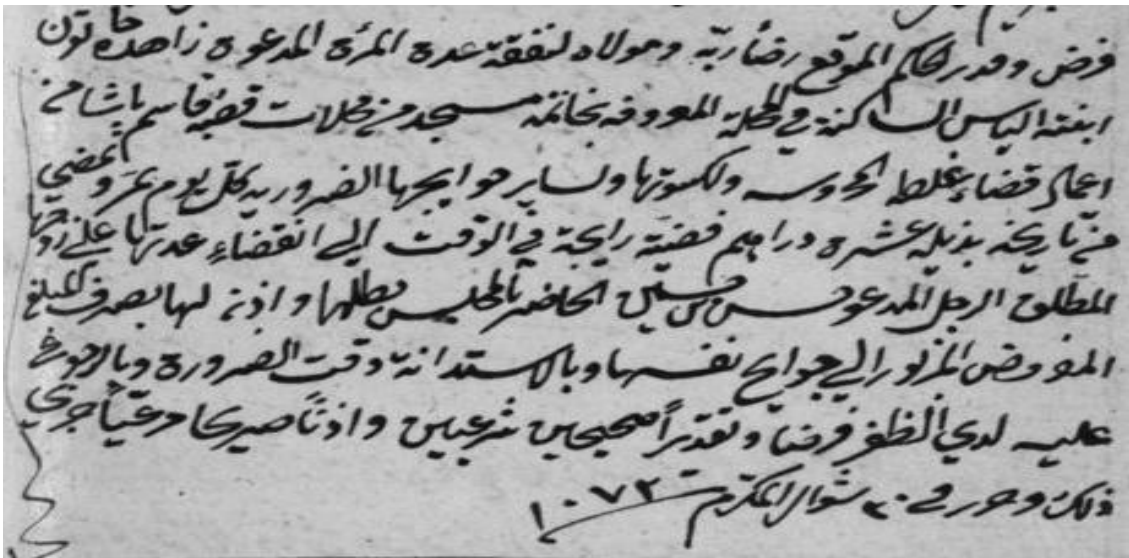 فرض وقدر الحاكم الموقع رضاء ربه ومولاه لنفقة عدة المرأة المدعوة زاهده خاتون
ابنته الياس الساكنة في المحلة المعروفه بخاتمة مسجد من محلات قصبة قاسم پاشا من
اعمال قضاء غلطه المحروسه ولكسوتها ولساير حوايجها الضروريه كل يوم يمر ويمضي
من تاريخه بذيله عشره دراهم فضية رايجة في الوقت الي انقضاء عدتها علي زوجها
المطلق الرجل المدعو حسن بن حسين الحاضر بالمجلس بطلبها واذن لها بصرف المبلغ
المفروض المزبور الي حوايج نفسها وبالاستدانة وقت الضرورة وبالرجوع
عليه لدي الظفر فرضا وتقديراً صحيحين شرعيين واذناً صريحا مرعياً جري
ذلك وحرر في ٢٠ شوال المكرم سنة ١٠٧٢